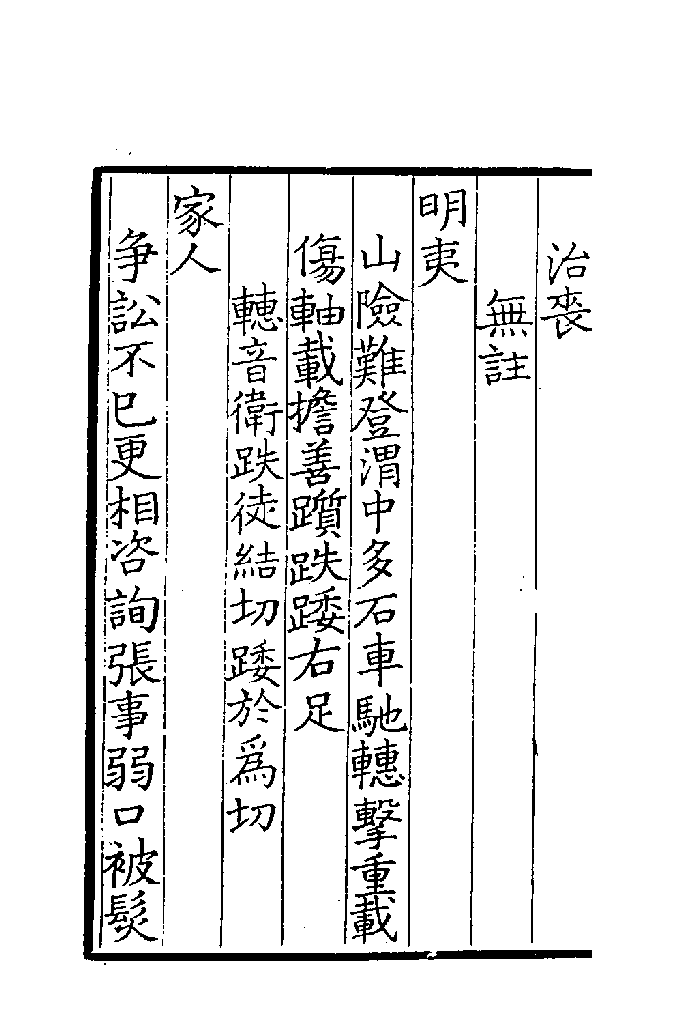 治喪
無註
明夷
山險難登渭中多石車馳轊擊重載
傷軸載擔善躓跌踒右足
轊音衛跌徒結切踒於爲切
家人
争訟不已更相咨詢張事弱口被髮